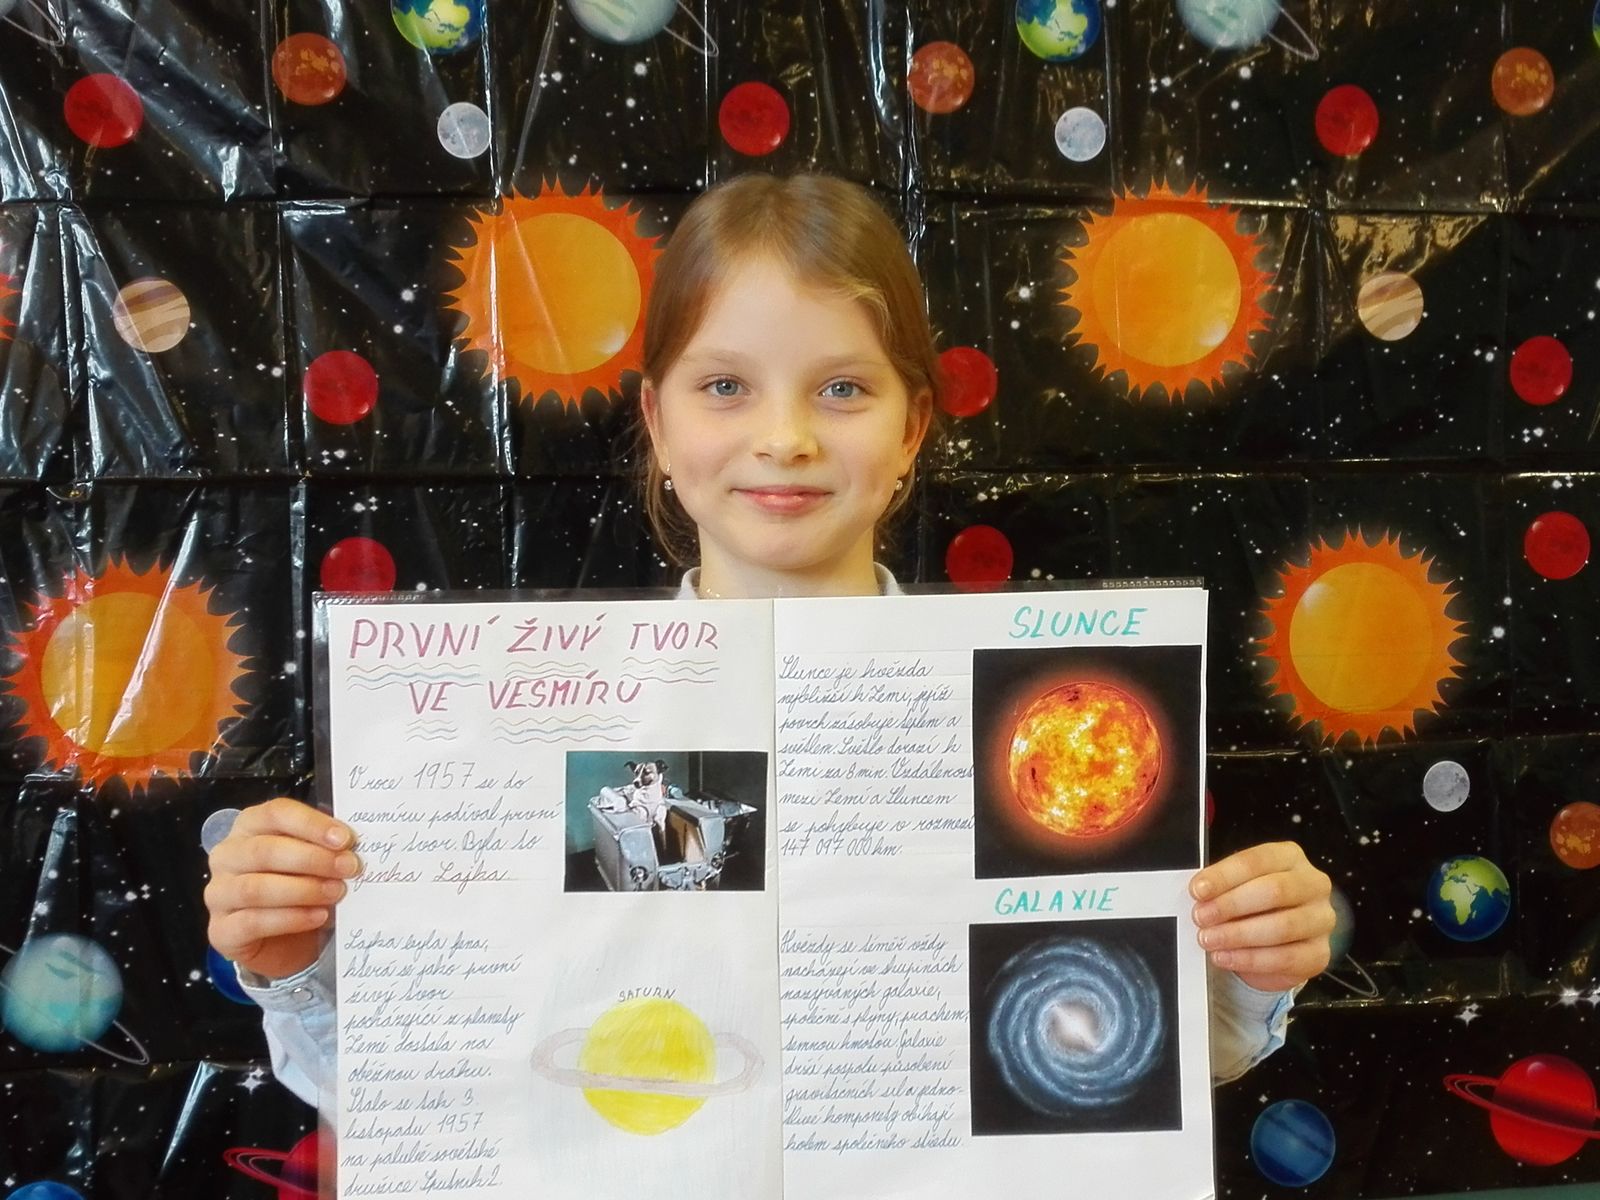 PRVNÍ ŽIVÝ TVOR
VE VESMÍRU
V roce 1957 se do
vesmíru podíval první
živý tvor. Byla to
fenka Lajka.
Lajka byla fena,
která se jako první
živý tvor
pocházející z planety
Země dostala na
oběžnou dráhu.
Stalo se tak 3.
listopadu 1957
na palubě sovětské
družice Sputnik 2.
SATURN
SLUNCE
Slunce je hvězda
nejbližší k Zemi, jejíž
povrch zásobuje teplem a
světlem. Světlo dorazí k
Zemi za 8 min. Vzdálenost
mezi Zemí a Sluncem
se pohybuje v rozmezí
147 097 000 km.
GALAXIE
Hvězdy se téměř vždy
nacházejí ve skupinách
nazývaných galaxie,
společně s plyny, prachem,
temnou hmotou. Galaxie
drží pospolu působení
gravitačních sil a jedno-
tlivé komponenty obíhají
kolem společného středu.